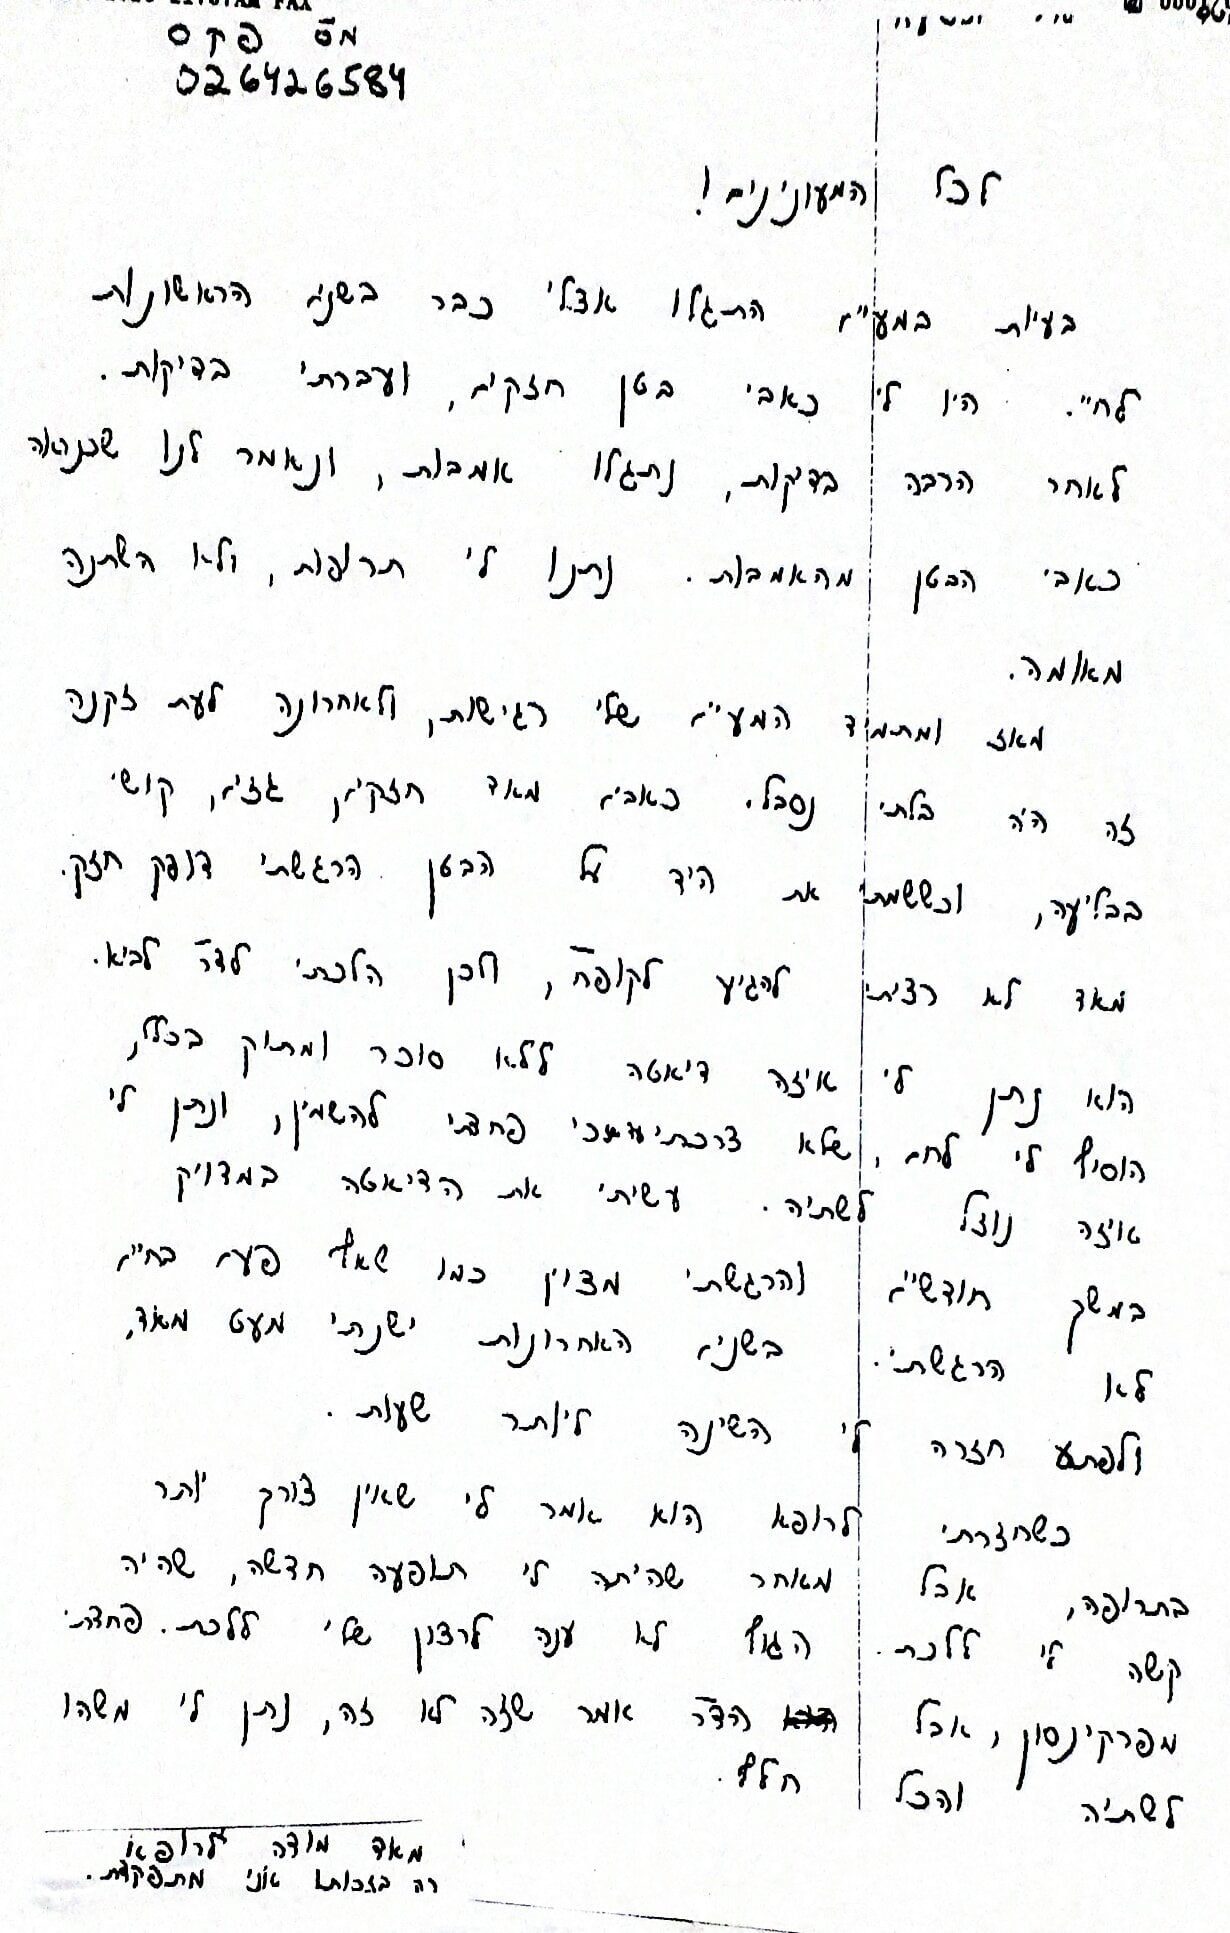 מס פקס
026426584
לכל המעונינים!
בעיות במעים התגלו אצלי כבר בשנים הראשונות
לחיי. היו לי כאבי בטן חזקים, ועברתי בדיקות.
לאחר הרבה בדיקות, נתגלו אמבות, ונאמר לנו שכנראה
כאבי הבטן מהאמבות. נתנו לי תרופות, ולא השתנה
מאומה.
מאז ומתמיד המעיים שלי רגישות, ולאחרונה לעת זקנה
זה היה בלתי נסבל. כאבים מאד חזקים, גזים, קושי
בבליעה, וכששמתי את היד על הבטן הרגשתי דופק חזק.
מאד לא רציתי להגיע לקופח, ולכן הלכתי לדר לביא.
הוא נתן לי איזה דיאטה ללא סוכר ומתוק בכלל,
הוסיף לי לחם, שלא צרכתי כי פחדתי להשמין, ונתן לי
איזה נוזל לשתיה. עשיתי את הדיאטה במדויק
במשך חודשיים והרגשתי מצוין כמו שאף פעם בחיים
לא הרגשתי. בשנים האחרונות ישנתי מעט מאד,
ולפתע חזרה לי השינה ליותר שעות.
כשחזרתי לרופא הוא אמר לי שאין צורך יותר
בתרופה, אבל מאחר שהיתה לי תופעה חדשה, שהיה
קשה לי ללכת. הגוף לא ענה לרצון שלי ללכת. פחדתי
מפרקינסון, אבל הדר אמר שזה לא זה, נתן לי משהו
לשתיה והכל חלף.
מאד מודה לרופא
רה בזכותו אני מתפקדת.